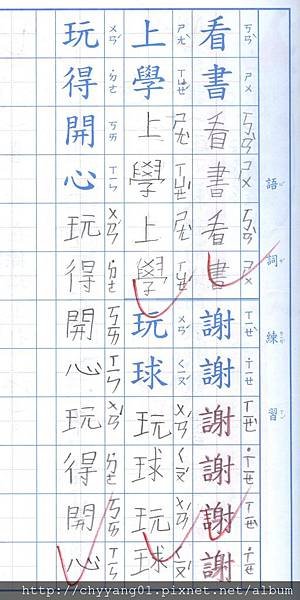 語詞練習
看書看書看書謝謝謝謝謝謝
ㄎㄢˋ ㄕㄨ ㄎㄢˋ ㄕㄨ ㄎㄢˋ ㄕㄨ ㄒㄧㄝˋ ˙ㄒㄧㄝ ㄒㄧㄝˋ ˙ㄒㄧㄝ ㄒㄧㄝˋ ˙ㄒㄧㄝ
上學上學上學玩球玩球玩球
ㄕㄤˋ ㄒㄩㄝˊ ㄕㄤˋ ㄒㄩㄝˊ ㄕㄤˋ ㄒㄩㄝˊ ㄨㄢˊ ㄑㄧㄡˊ ㄨㄢˊ ㄑㄧㄡˊ ㄨㄢˊ ㄑㄧㄡˊ
玩得開心玩得開心玩得開心
ㄨㄢˊ ˙ㄉㄜ ㄎㄞ ㄒㄧㄣ ㄨㄢˊ ˙ㄉㄜ ㄎㄞ ㄒㄧㄣ ㄨㄢˊ ˙ㄉㄜ ㄎㄞ ㄒㄧㄣ
http://chyyang01.pixnet.net/album